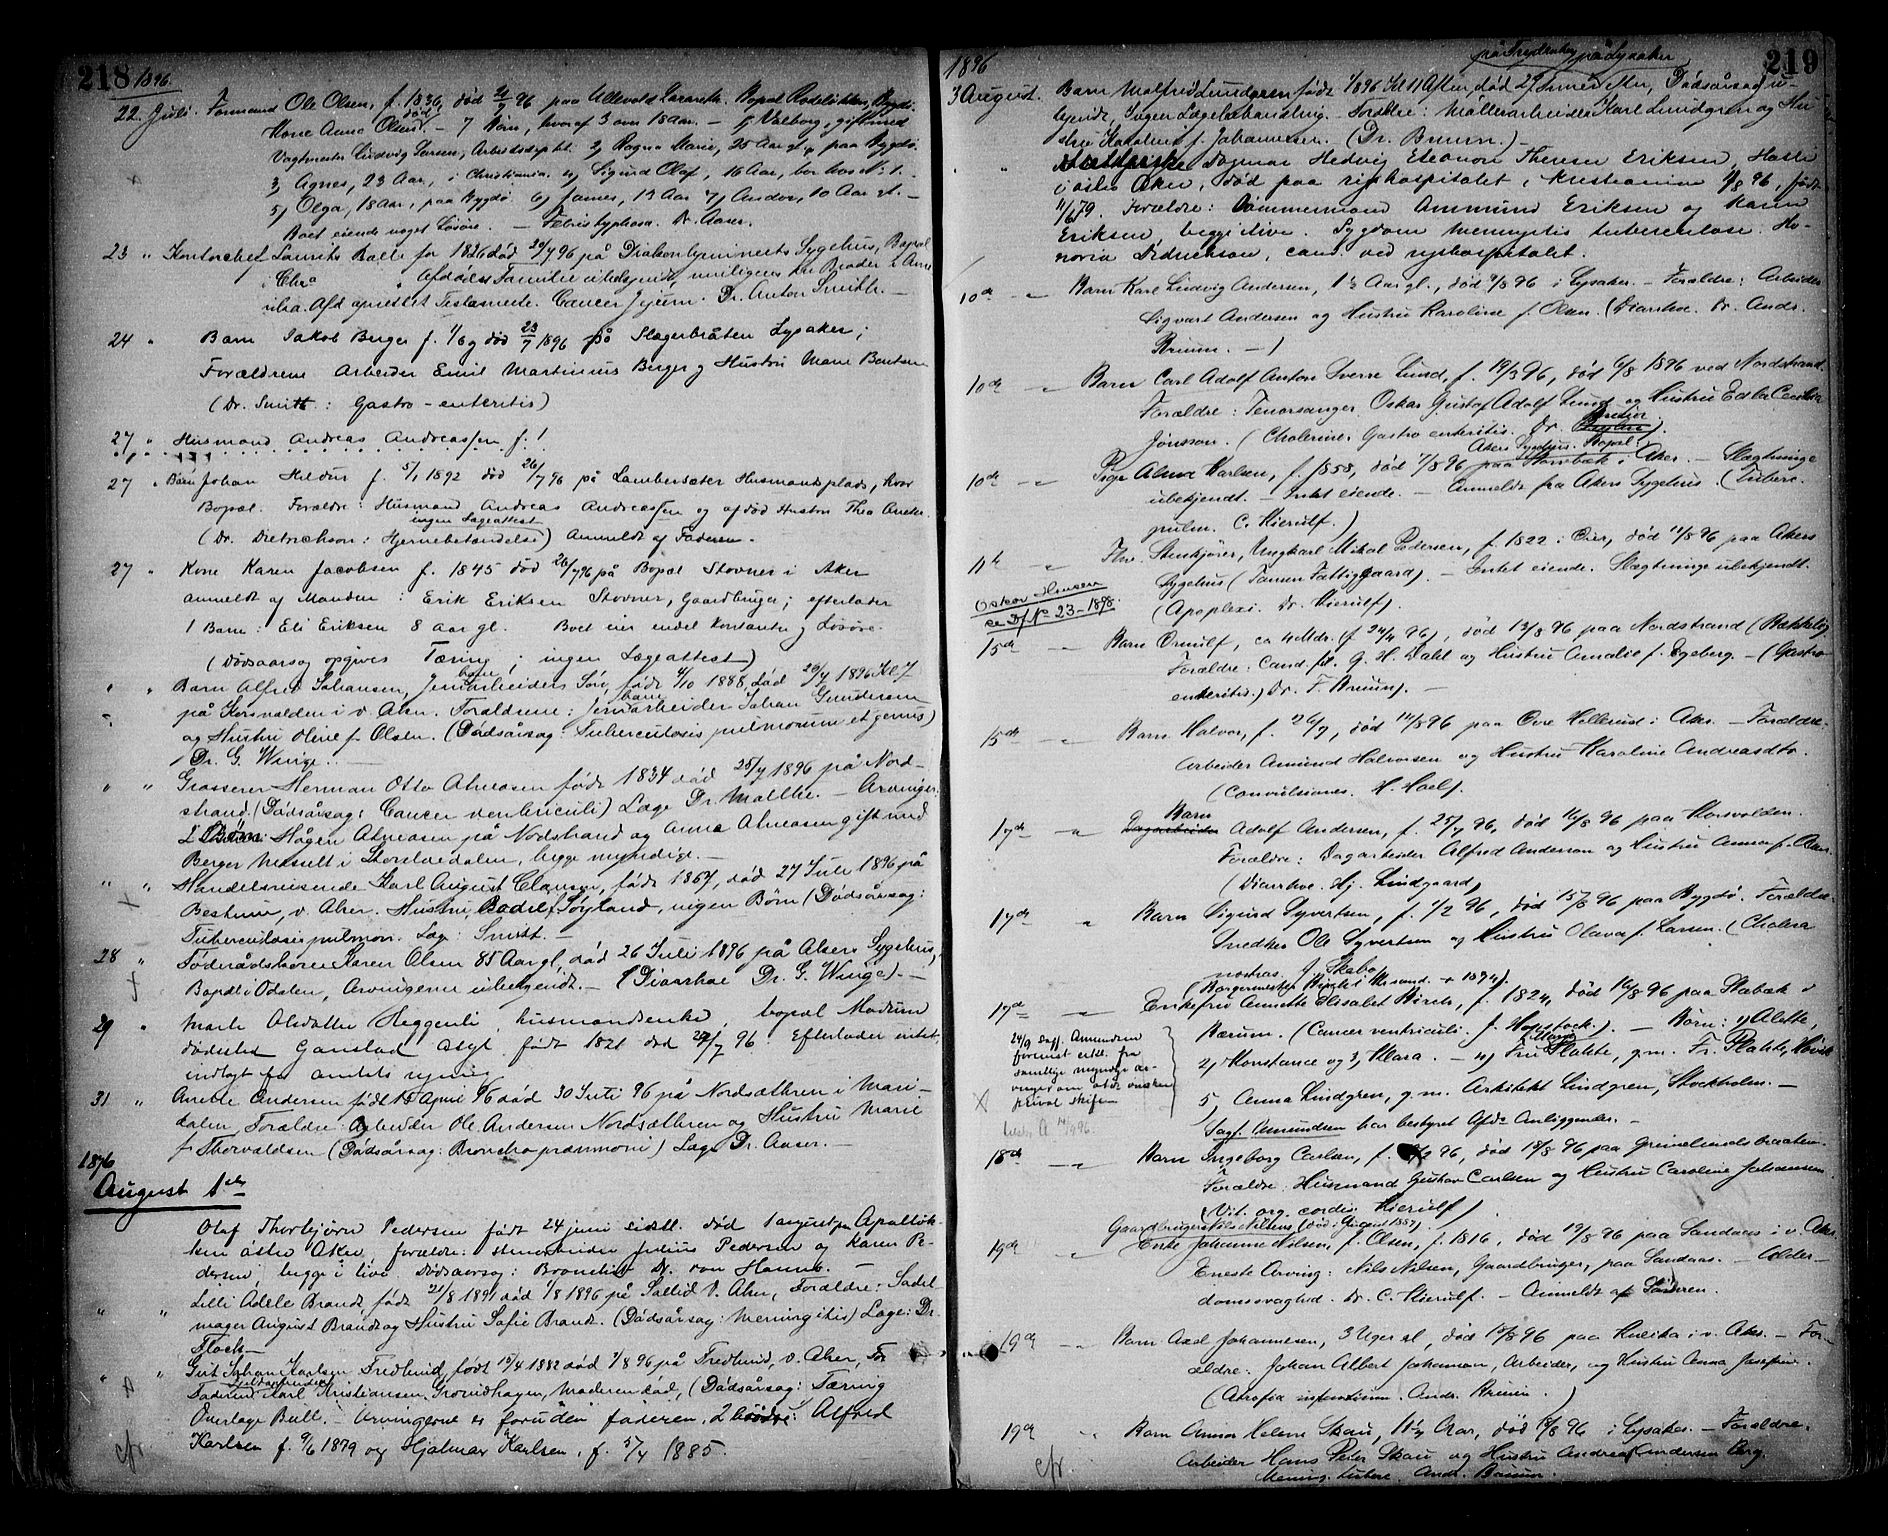 218 1896
22 Juli. Formand Ole Olsen, f. 1836, død 21/7 96 paa Ullevold Lazareth. Bopæl Rodeløkken, Bygdø.
Kone Anna Olsen død - 7 Børn, hvoraf 3 om 18 Aar. - 1) Valborg, gift med
Vagtmester Ludvig Larsen, Arbeidsdepht. 2) Ragna Marie, 25 Aar gl, paa Bygdø.
3) Agnes, 23 Aar, i Christiania. 4) Sigurd Olaf, 16 Aar, bor hos No 1. -
5) Olga, 18 Aar, paa Bygdø 6) James, 13 Aar 7) Andor, 10 Aar gl. -
Boet eiende noget Løsøre. - Febris typhosa. Dr. Aaser.
23 " Kontorchef Laurits Balle før 1826 død 20/7 96 på Diakonhjemmets Sygehus, Bopæl
i Chra. Afdødes Familie ubekjendt, muligens en Broder i Ame
rika. Afd oprettet Testamente. Cancer Jejuni. Dr. Anton Smith. -
24 " Barn Jakob Berger f. 1/6 og død 23/7 1896 på Slagerbråten Lysaker;
Forældrene Arbeider Emil Martinius Berger og Hustru Marie Bentsen
(Dr. Smith: Gastro-enteritis)
27 " Husmand Andreas Andreassen f. !
27 " Barn Johan Hildur f. 5/1 1892 død 26/7 96 på Lambersæter Husmandsplads, hvor
Bopæl. Forældre: Husmand Andreas Andreassen og afdød Hustru Thea
ingen Lægeattest
(Dr. Dietrichson: Hjernebetændelse) Anmeldt af Faderen.
27 " Kone Karen Jacobsen f. 1845 død 26/7 96 på Bopæl Stovner i Aker
anmeldt af Manden: Erik Eriksen Stovner, Gaardbruger; efterlader
1 Barn: Eli Eriksen 8 aar gl. Boet eier endel Kontanter og Løsøre.
(Dødsaarsag opgives Tæring; ingen Lægeattest)
" " Barn Alfred Johansen, Jernbanearbeiders Søn, født 4/10 1888, død 23/7 1896 Kl 7
på Korsvolden i v. Aker. Forældrene: Jernbanearbeider Johan Gundersen
og Hustru Oline f. Olsen. (Dødsårsag: Tuberculosis pulmonum et genus)
Dr. G. Winge. -
" " Grosserer Herman Otto Ahnesen født 1834 død 25/7 1896 på Nord-
strand. (Dødsårsag: Cancer ventriculi) Læge Dr. Malthe. - Arvinger:
2 Børn Hågen Alnesen på Nordstrand og Anna Alnesen gift med
Berger Messelt i Storelvedalen, begge myndige. -
" " Handelsreisende Karl August Clausen, født 1867, død 27 Juli 1896 på
Bestum, v. Aker. Hustru, Bodil f. Søyland, ingen Børn (Dødsårsag:
Tuberculosis pulmon. Læge: Smitt. -
28 " Føderådskone Karen Olsen 85 Aar gl, død 26 Juli 1896 på Akers Sygehus,
Bopæl i Odalen, Arvingerne ubekjendt. - (Diarrhoe Dr. G. Winge). -
29 " Marte Olsdatter Heggenli, husmandsenke, bopæl Modum
dødssted Ganstad Asyl født 1821 død 29/7 96. Efterlader intet,
indlagt for amtets regning
31 " Anette Andersen født 15 April 96 død 30 Juli 96 på Nordsæthren i Mari-
dalen, Forældre: Arbeider Ole Andersen Nordsæthren og Hustru Marie
f. Thorvaldsen (Dødsårsag: Bronchopneumoni) Læge Dr. Aaser. -
1896
August 1ste
Olaf Thorbjørn Pedersen født 24 juni sidstl. død 1 august på Apalløk-
ken østre Aker, forældre: stenarbeider Julius Pedersen og Karen Pe-
dersen, begge i live. Dødsaarsag: Bronchit Dr. von Hanno. -
" " Lilli Adele Brandt, født 21/8 1891 død 1/8 1896 på Sollid V. Aker, Forældre: Sadel
mager August Brandt og Hustru Sofie Brandt. (Dødsårsag: Meningitis) Læge: Dr.
Flock. -
" " Gut Johan Karlsen Fredlund, født 15/4 1882 død 1/8 96 på Fredlund, v. Aker, For
Faderen Karl Kristiansen, Grorudhagen, Moderen død, (Dødsårsag: Tæring
Overlæge Bull. - Arvingerne er foruden faderen, 2 brødre: Alfred
Karlsen f. 9/6 1879 og Hjalmar Karlsen, f. 5/4 1885.
cfr
1896 på Lysaker 219
3 August. Barn Malfred Lundgren født 1/8 96 Kl 11 Aften død 29 timer efter, Dødsårsag u-
bekjendt, Ingen Lægebehandling. - Forældre: Møllearbeider Karl Lundgren og Hu-
stru Karoline f. Johannesen. (Dr. Bruun.) -
" Dagmar Hedvig Eleonore Therese Eriksen, Hasle
i østre Aker, død paa rigshospitalet i Kristiania 1/8 96, født
11/6 79. Forældre: Tømmermand Ammund Eriksen og Karen
Eriksen begge i live. Sygdom Meningitis tuberculose. Ho-
noria Didrichsen, cand. ved rigshospitalet.
10de " Barn Karl Ludvig Andersen, 1½ Aar gl., død 9/8 96 i Lysaker. - Forældre: Arbeider
Sigvart Andersen og Hustru Karoline f. Olsen. (Diarrhoe. Dr. Andr.
Bruun. -)
10de " Barn Carl Adolf Anton Sverre Lund, f. 19/3 96, død 6/8 1896 ved Nordstrand.
Forældre: Tenorsanger Oskar Gustaf Adolf Lund og Hustru Edla Cecilia
Jönsson. (Cholerine. Gastro enteritis. Dr.
Akers Sygehus. Bopæl:
10de " Pige Alma Karlsen, f. 1858, død 7/8 96 paa Storrbæk i Aker. - Slægtninge
ubekjendt. - Intet eiende. - Anmeldt fra Akers Sygehus. (Tuberc.
pulm. C. Kierulf.)
11te " Fhv. Stenkjører, Ungkarl Mikal Pedersen, f. 1822 i Eier, død 11/8 96 paa Akers
Sygehus (Tømen Fattiggaard). - Intet eiende. Slægtninge ubekjendt.
(Apoplexi. Dr. Kierulf).
Oskar Hansen
se Df. No 23 - 1898.
15de " Barn Ørnulf, ca 4 Mdr. (f. 24/4 96), død 13/8 96 paa Nordstrand (Bækkelag)
Forældre: Cand. fil. G. H. Dahl og Hustru Amalie f. Egeberg. - (Gastro
enteritis.) Dr. F. Bruun). -
15de " Barn Halvor, f. 26/7, død 14/8 96 paa Øvre Hollerud i Aker. - Forældre:
Arbeider Amund Halvorsen og Hustru Karoline Andreasdtr.
(Convulsiones. H. Hoel).
17de " Barn Adolf Andersen, f. 25/7 96, død 16/8 96 paa Korsvolden.
Forældre: Dagarbeider Alfred Anderson og Hustru Anna f. Olsen.
(Diarrhoe. Hj. Lindgaard)
17de " Barn Sigurd Syvertsen, f. 1/2 96, død 15/8 96 paa Bygdø. Forældre:
Snedker Ole Syvertsen og Hustru Olava f. Larsen. (Cholera
nostras. J. Skabo)
(Borgermester Hirsch i Krsand. † 1874).
17de " Enkefru Annette Elisabet Hirsch, f. 1824, død 16/8 96 paa Stabæk i
Bærum. (Cancer ventriculi. J. Hopstock). - Børn: 1) Alette,
2) Konstance og 3) Klara. - 4) Fru Platte, g.m. Fr. Platte, Høvik
5, Anna Lindgren, g.m. Arkitekt Lindgren, Stockholm. -
Sagf. Amundsen har bestyret Afdes Anliggender. -
24/9 Sagf. Amundsen
forevist erkl. fra
samtlige myndige ar-
vinger om at de ønsker
privat skifte
18de " Barn Ingeborg Carlsen, f. 96, død 18/8 96 paa Grimelundsbraaten.
Forældre: Husmand Gustav Carlsen og Hustru Caroline Johannesen.
(Vit. org. cordis. Kierulf)
Gaardbruger Nils Nilsens (død i August 1887).
19de " Enke Johanne Nilsen, f. Olsen, f. 1816, død 19/8 96 paa Sandaas i v. Aker.
Eneste Arving: Nils Nilsen, Gaardbruger, paa Sandaas. - Alder-
domssvaghed. Dr. C. Kierulf. - Anmeldt af Sønnen.
19de " Barn Axel Johannesen, 3 Uger gl, død 18/8 96 paa Hneika i v. Aker. - For-
ældre: Johan Albert Johannesen, Arbeider, og Hustru Anna Josefine.
(Atrofia infantium. Andr. Bruun.)
19de " Barn Anna Helene Skau, 1¼ Aar, død 18/8 96 i Lysaker. - Forældre.
cfr. Arbeider Hans Peter Skau og Hustru Andrea f. Andersen Berg.
Mening. tuberc. Andr. Bruun.